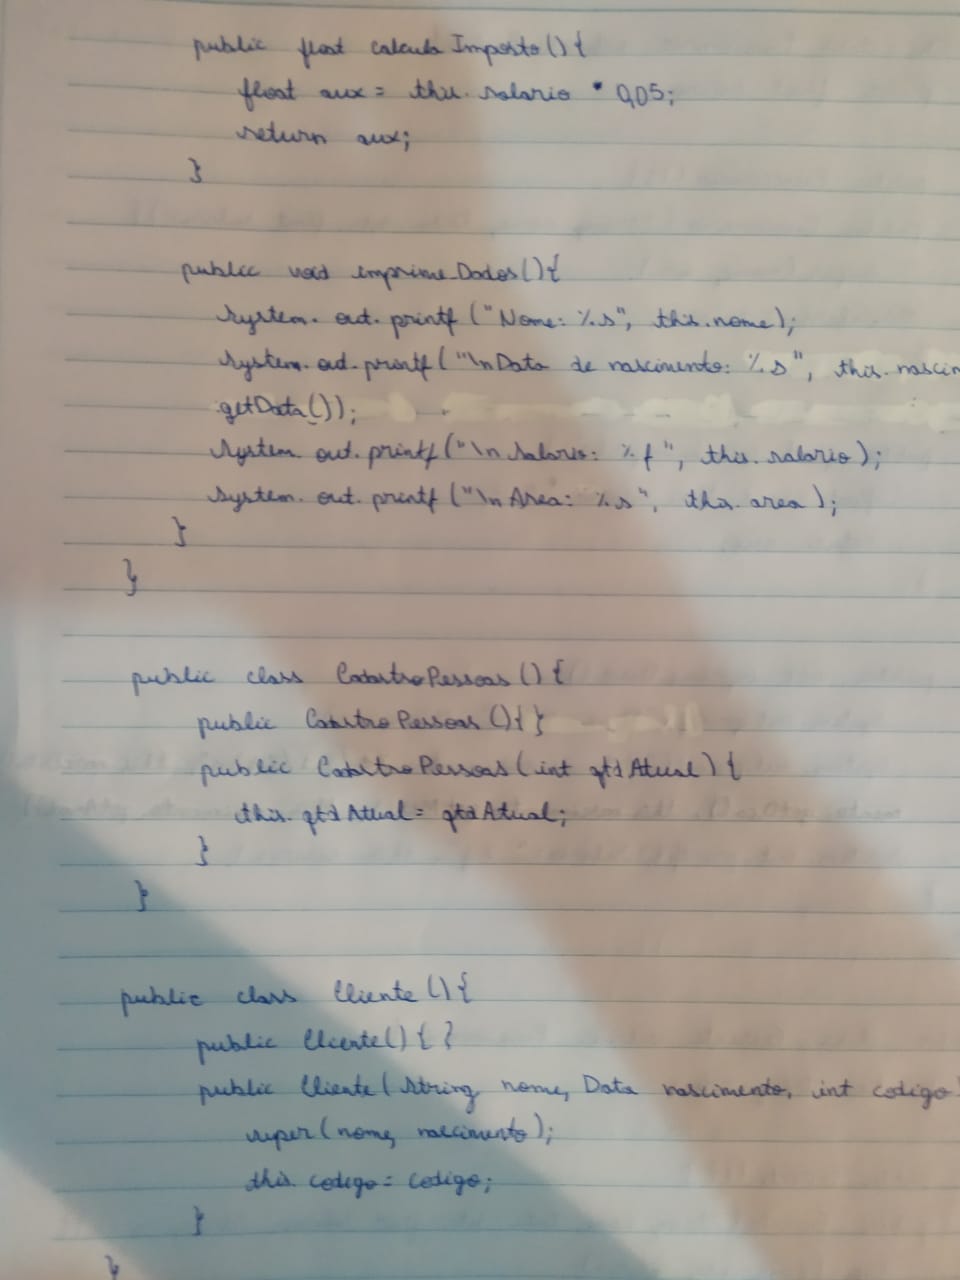 public float calcula Imposto(){
float aux = this.salario * 0,05;
return aux;
}
public void imprime_Dados(){
System.out.printf("Nome: %s", this.nome);
System.out.printf("\nData de nascimento: %s", this.nascim
getData());
System.out.printf("\n Salario: %f", this.salario);
System.out.printf("\n Area: %s", this.area);
}
}
public class CadastroPessoas(){
public CadastroPessoas(){}
public CadastroPessoas(int qtdAtual){
this.qtdAtual = qtdAtual;
}
}
public class Cliente(){
public Cliente(){ }
public Cliente(String nome, Data nascimento, int codigo)
super(nome, nascimento);
this.codigo = codigo;
}
}